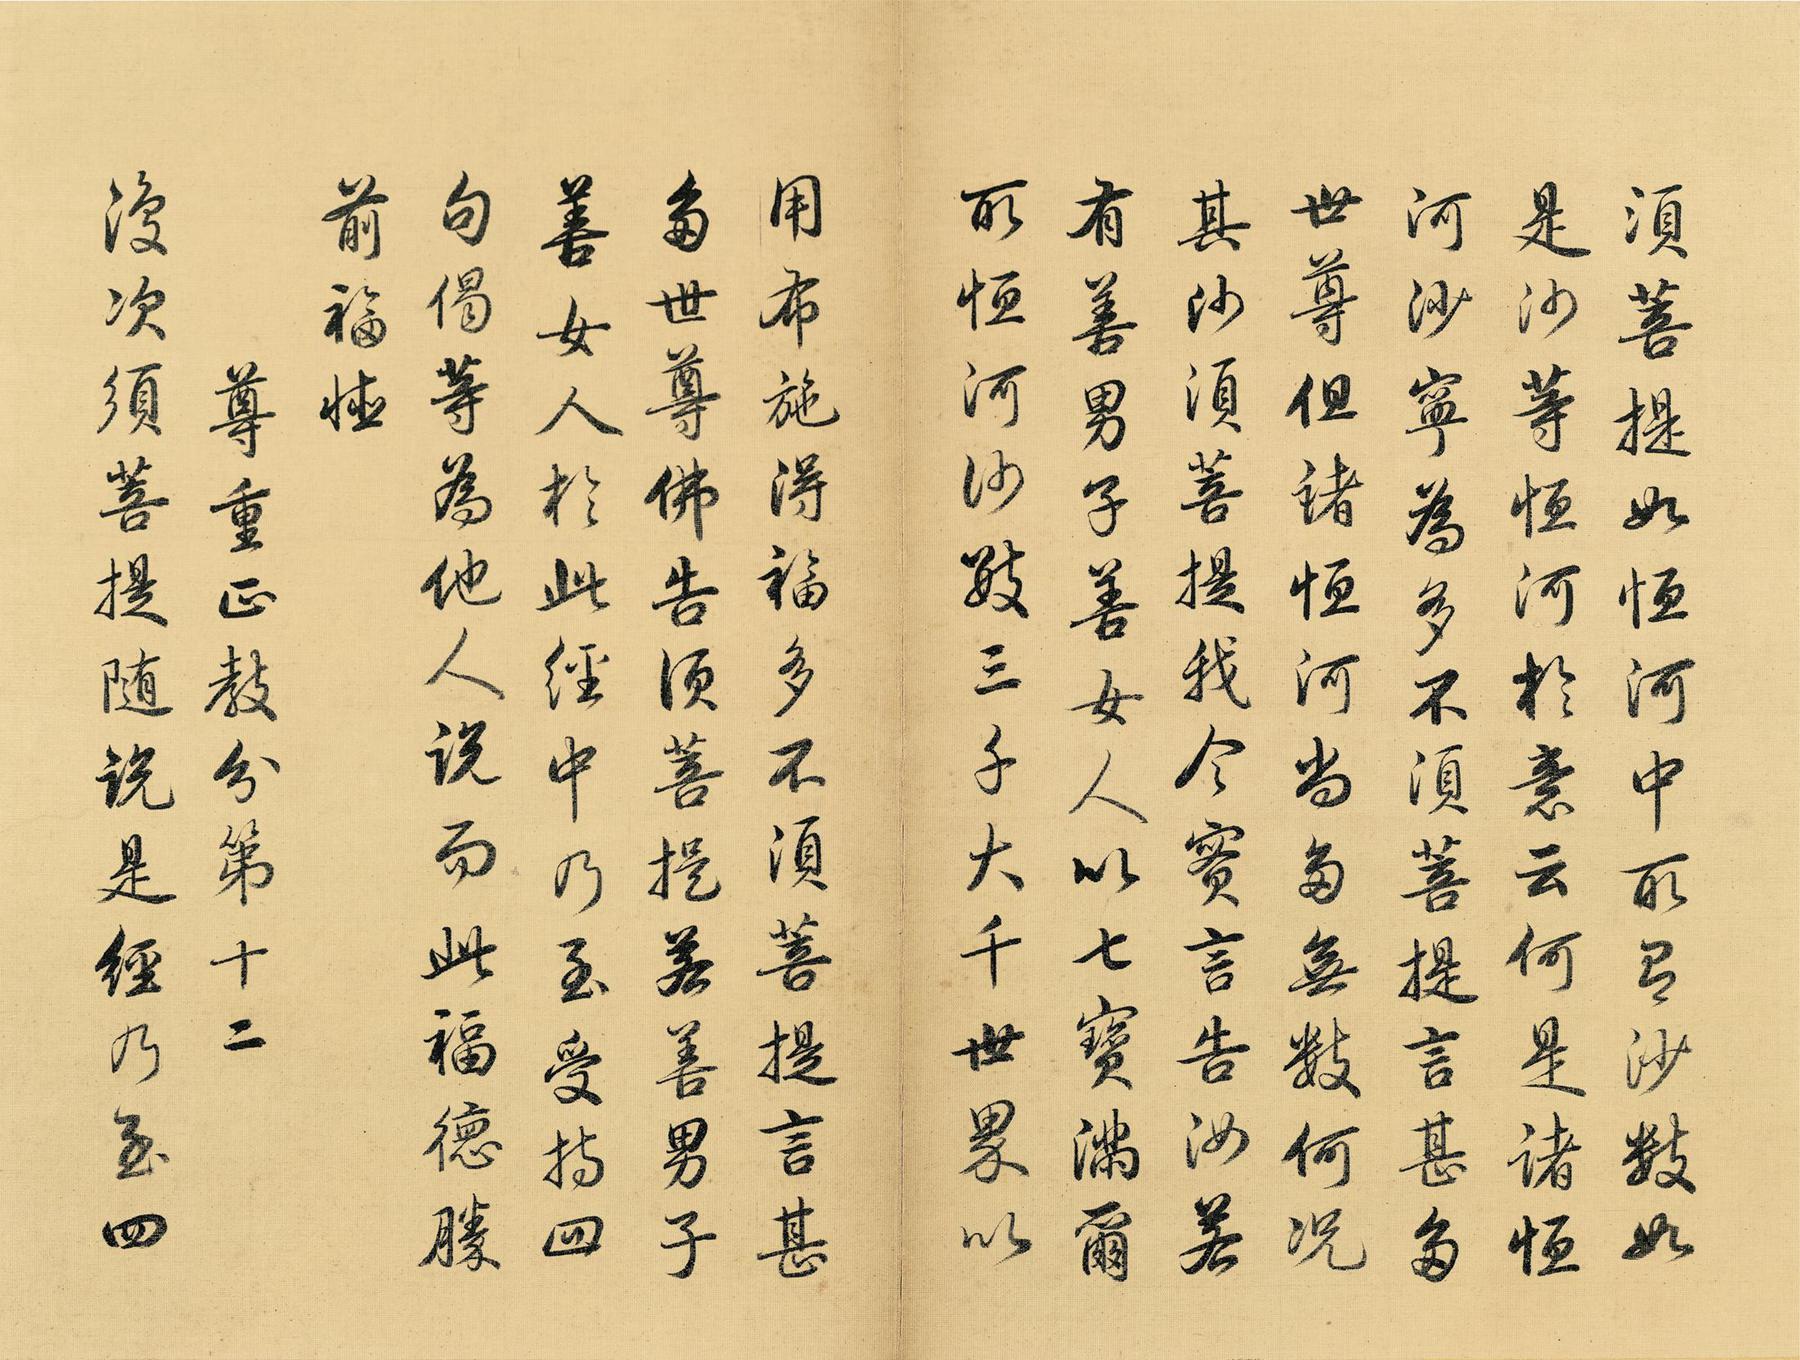 須菩提如恒河中所有沙數如
是沙等恒河於意云何是諸恒
河沙寧為多不須菩提言甚多
世尊但諸恒河尚多無數何況
其沙須菩提我今實言告汝若
有善男子善女人以七寶滿爾
所恒河沙數三千大千世界以
用布施得福多不須菩提言甚
多世尊佛告須菩提若善男子
善女人於此經中乃至受持四
句偈等為他人說而此福德勝
前福德
尊重正教分第十二
復次須菩提隨說是經乃至四